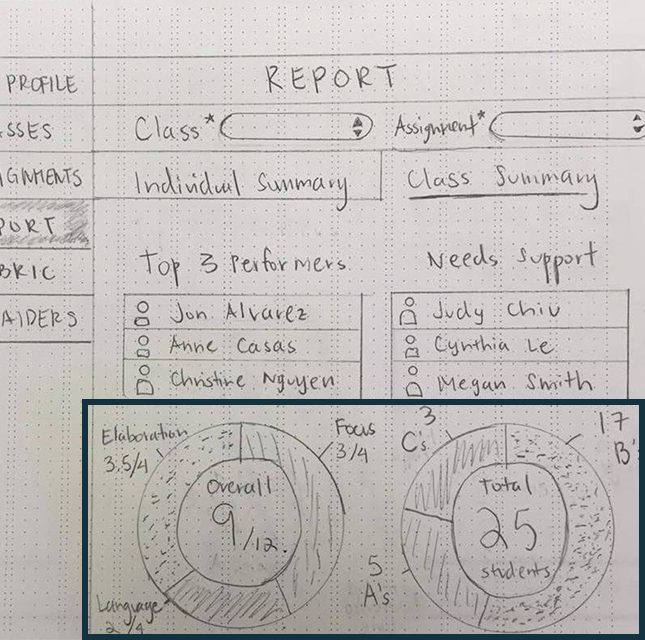 PROFILE
REPORT
SSES
Class*
Assignment*
IGNMENTS
Individual Summary
Class Summary
PORT
BRIC
Top 3 Performers
Needs Support
AIDERS
Jon Alvarez
Judy Chiu
Anne Casas
Cynthia Le
Christine Nguyen
Megan Smith
Elaboration
3.5/4
Focus
3/4
Overall
9/12.
Language
2 /4
3
C's
17
B's
Total
25
students
5
A's